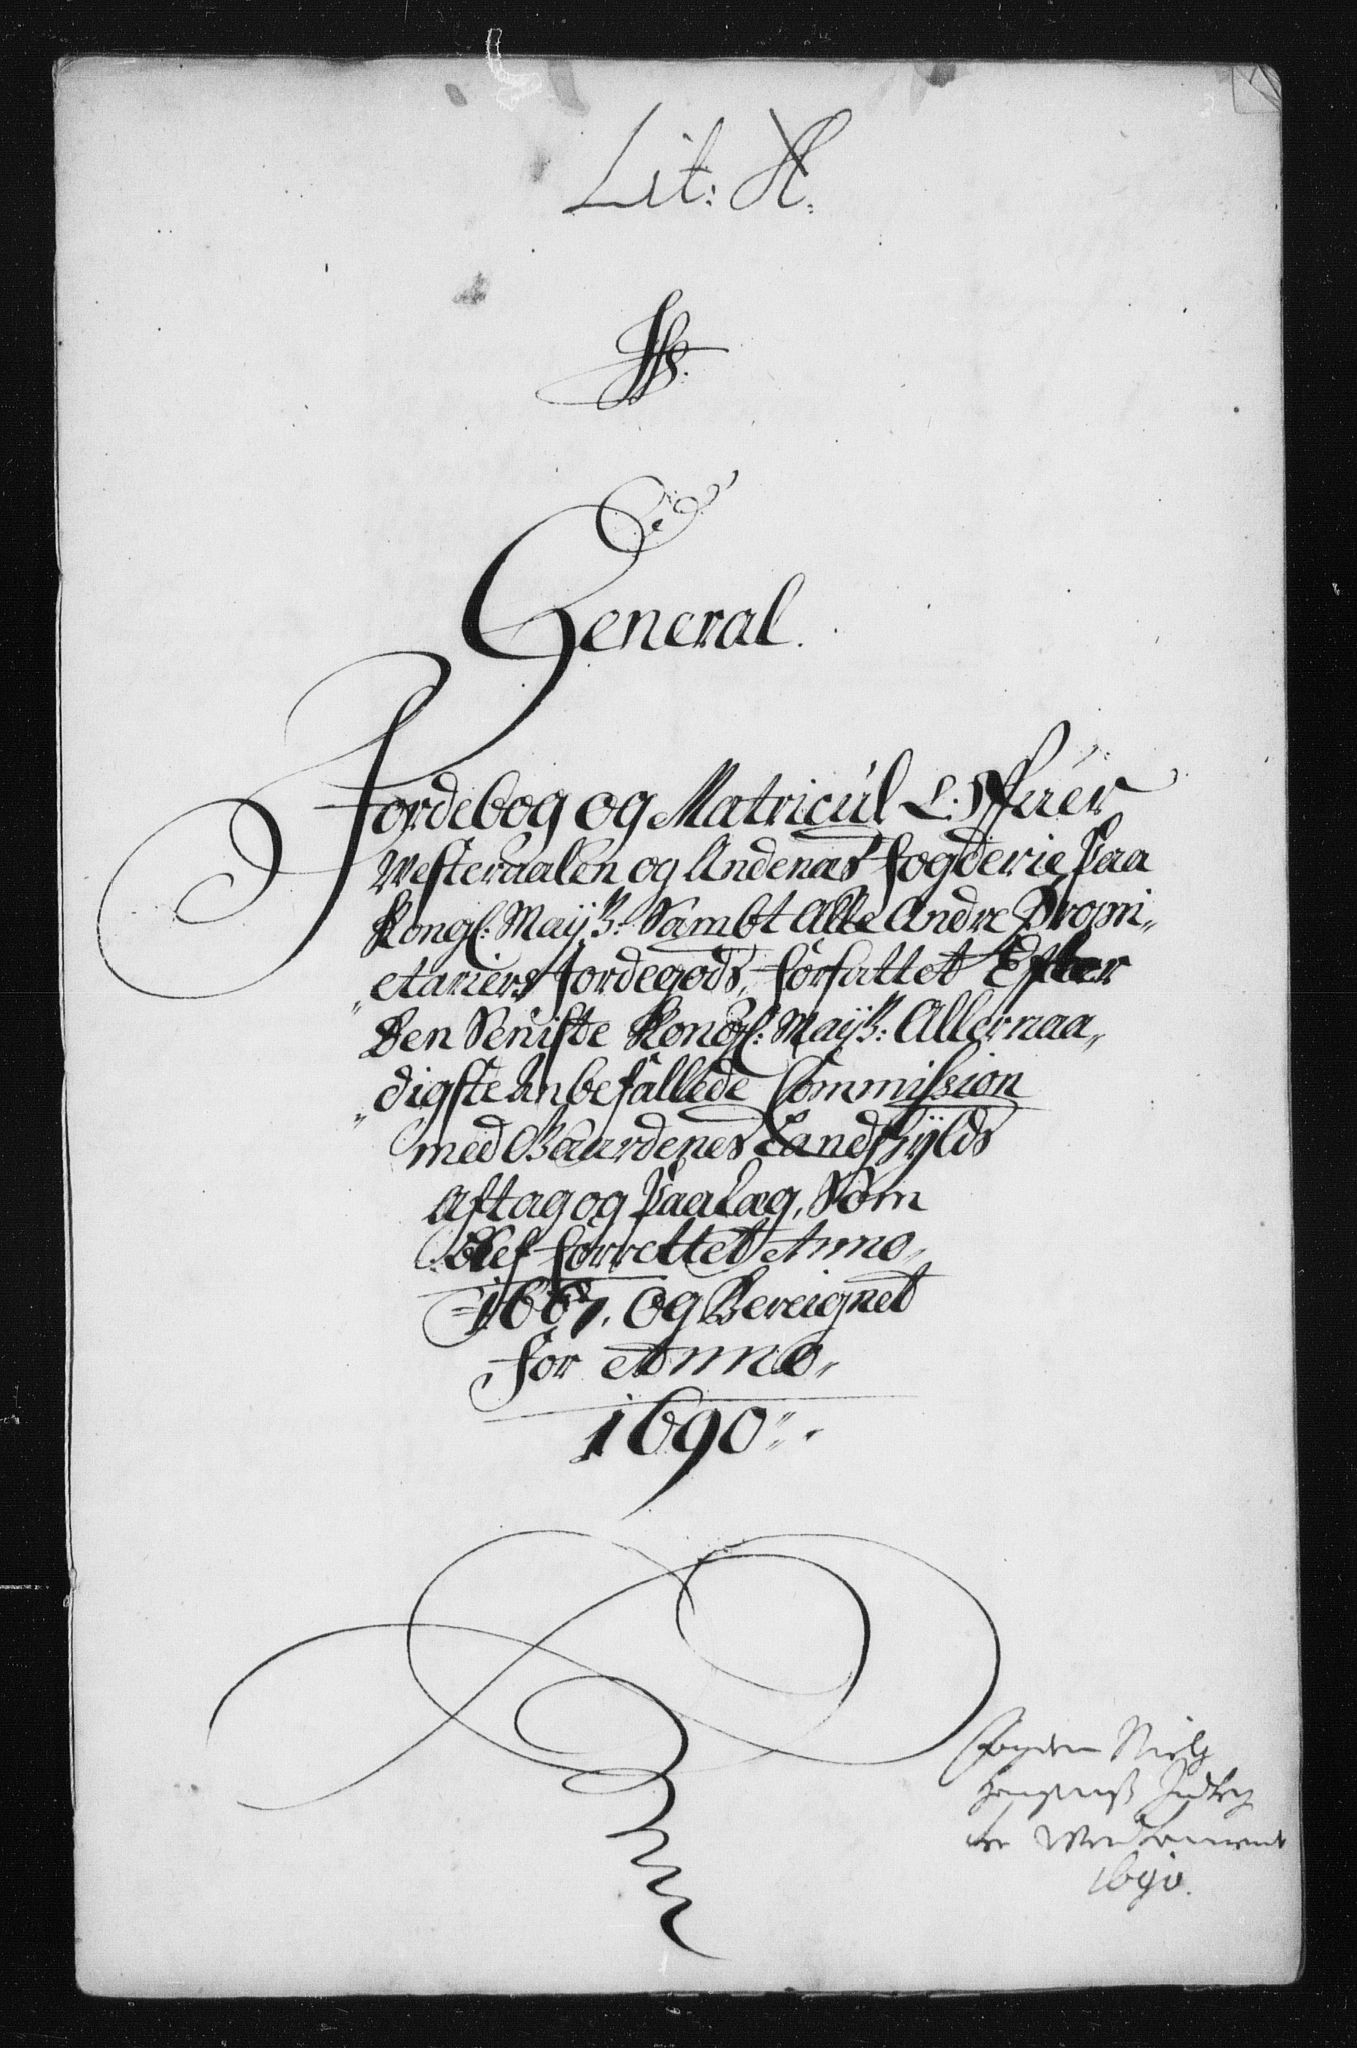 Lit: A.
General.
Jordebog og Matricúl Offúer
Westeraalen og Andenæs fogderie Paa
Kongl: Maÿtz: Sambt Alle Andre Propri„
„etariers Jordegods, forfattet Efter
Den Seniste Kongl: Maÿtz: Allernaa„
„digste Anbefallede Commission
med Gaardenes Landskÿlds
Aftag og Paalæg, Som
blef forrettet Anno
1667. og Bereignet
for Anno
1690
fogden Niels
1690.